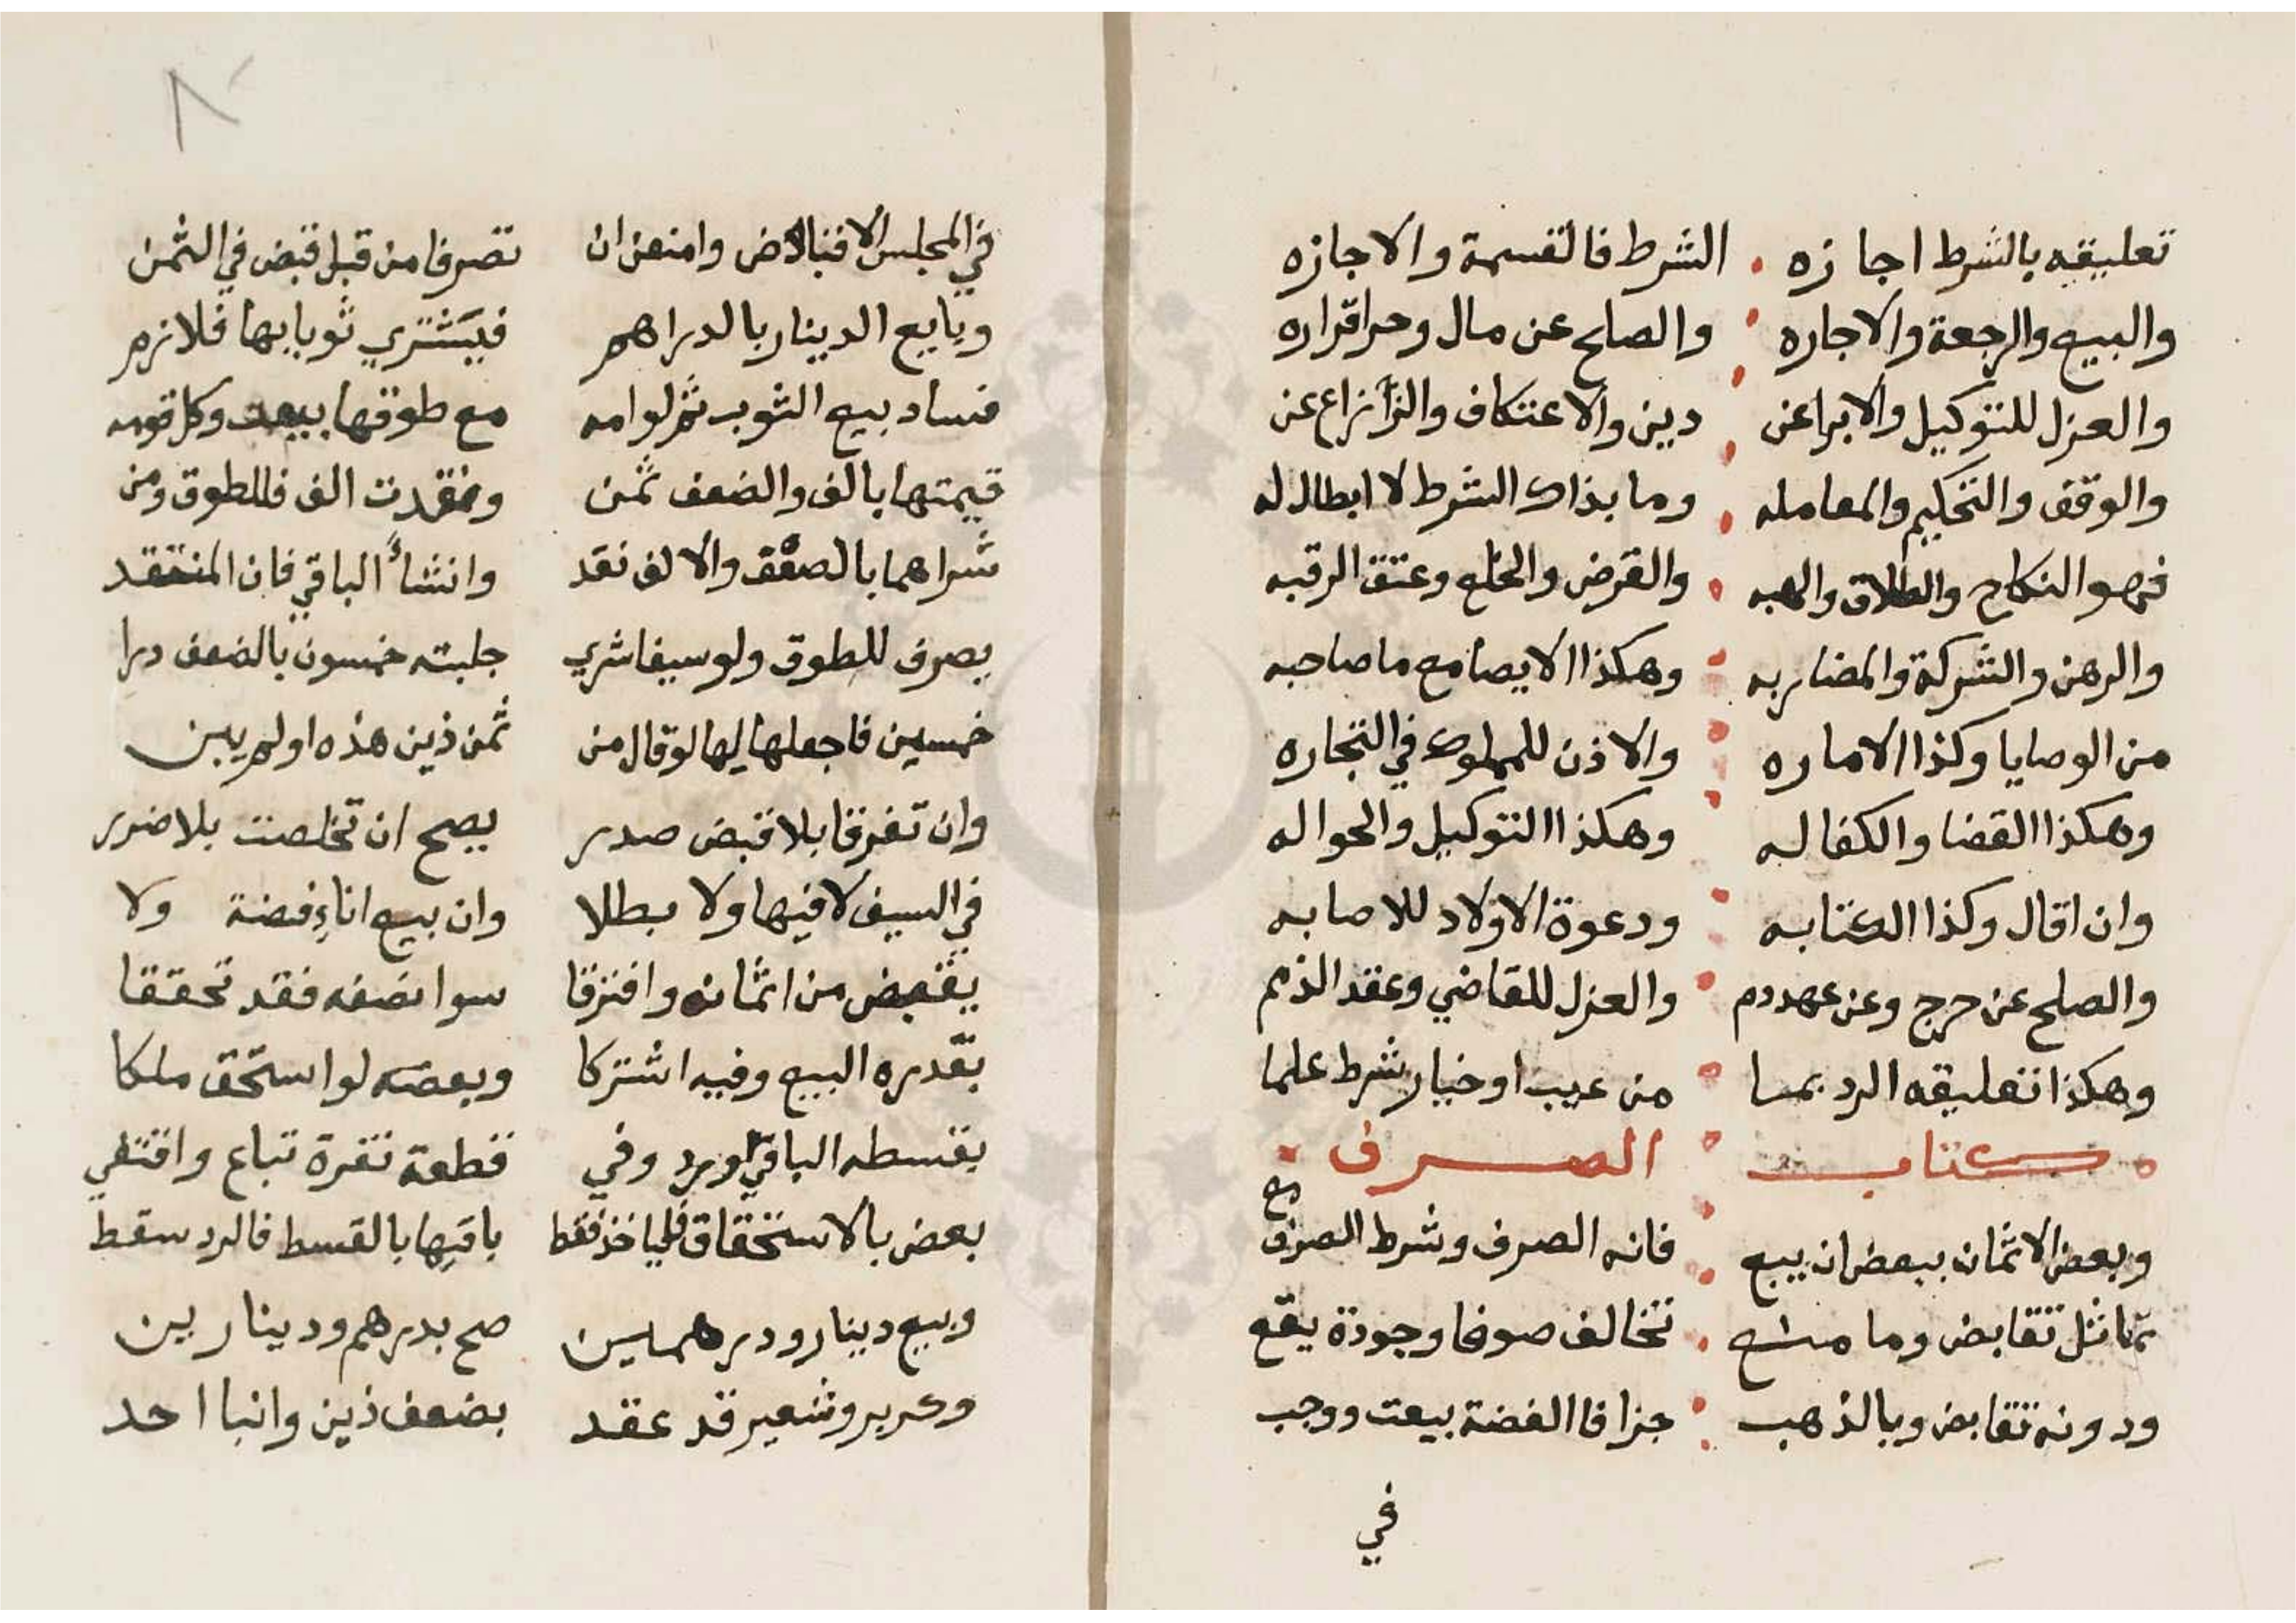 تعليقه بالشرط اجازه الشرط فالقسمة والاجازه
والبيع والرجعة والاجاره والصلح عن مال وحراقراره
والعزل للتوكيل والابراعن دين والاعتكاف والزارع عن
والوقف والتحكيم والمعامله وما بذاك الشرط لا ابطال له
فهو النكاح والطلاق والهبه والقرض والخلع وعتق الرقبه
والرهن والشركة والمضاربه وهكذا الايصا مع ما صاحبه
من الوصايا وكذا الاماره والاذن للمملوك في التجاره
وهكذا القضا والكفاله وهكذا التوكيل والحواله
وان اقال وكذا الكتابه ودعوة الاولاد للاصابه
والصلح عن حرج وعن عهد دم والعزل للقاضي وعقد الذمم
وهكذا تعليقه الرد بما من عيب او خيار شرط علما
كتاب الصرف
وبعض الاثمان ببعض ان يبع فانه الصرف وشرط الصرف مع
تماثل تقابض وما منع تخالف صوغا وجودة يقع
ودونه تقابض وبالذهب جزافا الفضة بيعت ووجب
في
في المجلس الاقباض وامنعن ان تصرفا من قبل قبض في الثمن
وبايع الدينار بالدراهم فيشتري ثوبا بها فلازم
فساد بيع الثوب ثم لو امه مع طوقها بيعت وكل قومه
قيمتها بالف والضعف ثمن ونقدت الف فللطوق ومن
شراهما بالصفق والالف نقد وانشأ الباقي فان المنتقد
يصرف للطوق ولو سيفا شري جلبته خمسون بالضعف درا
خمسين فاجعلها لها لو قال من ثمن ذين هذه او لم يبن
وان تفرقا بلا قبض صدر يصح ان تخلصت بلا ضرر
في السيف لا فيها ولا بطلا وان بيع اناء فضة ولا
يقبض من اثمانه وافترقا سوا نصفه فقد تحققا
بقدره البيع وفيه اشتركا وبعضه لو استحق ملكا
بقسطه الباقي او يرد وفي قطعة نقرة تباع واقتفي
بعض بالاستحقاق فليأخذ فقط باقيها بالقسط فالرد سقط
وبيع دينار ودرهمين صح بدرهم ودينارين
وكر بر وشعير قد عقد بضعف ذين وانبا احد